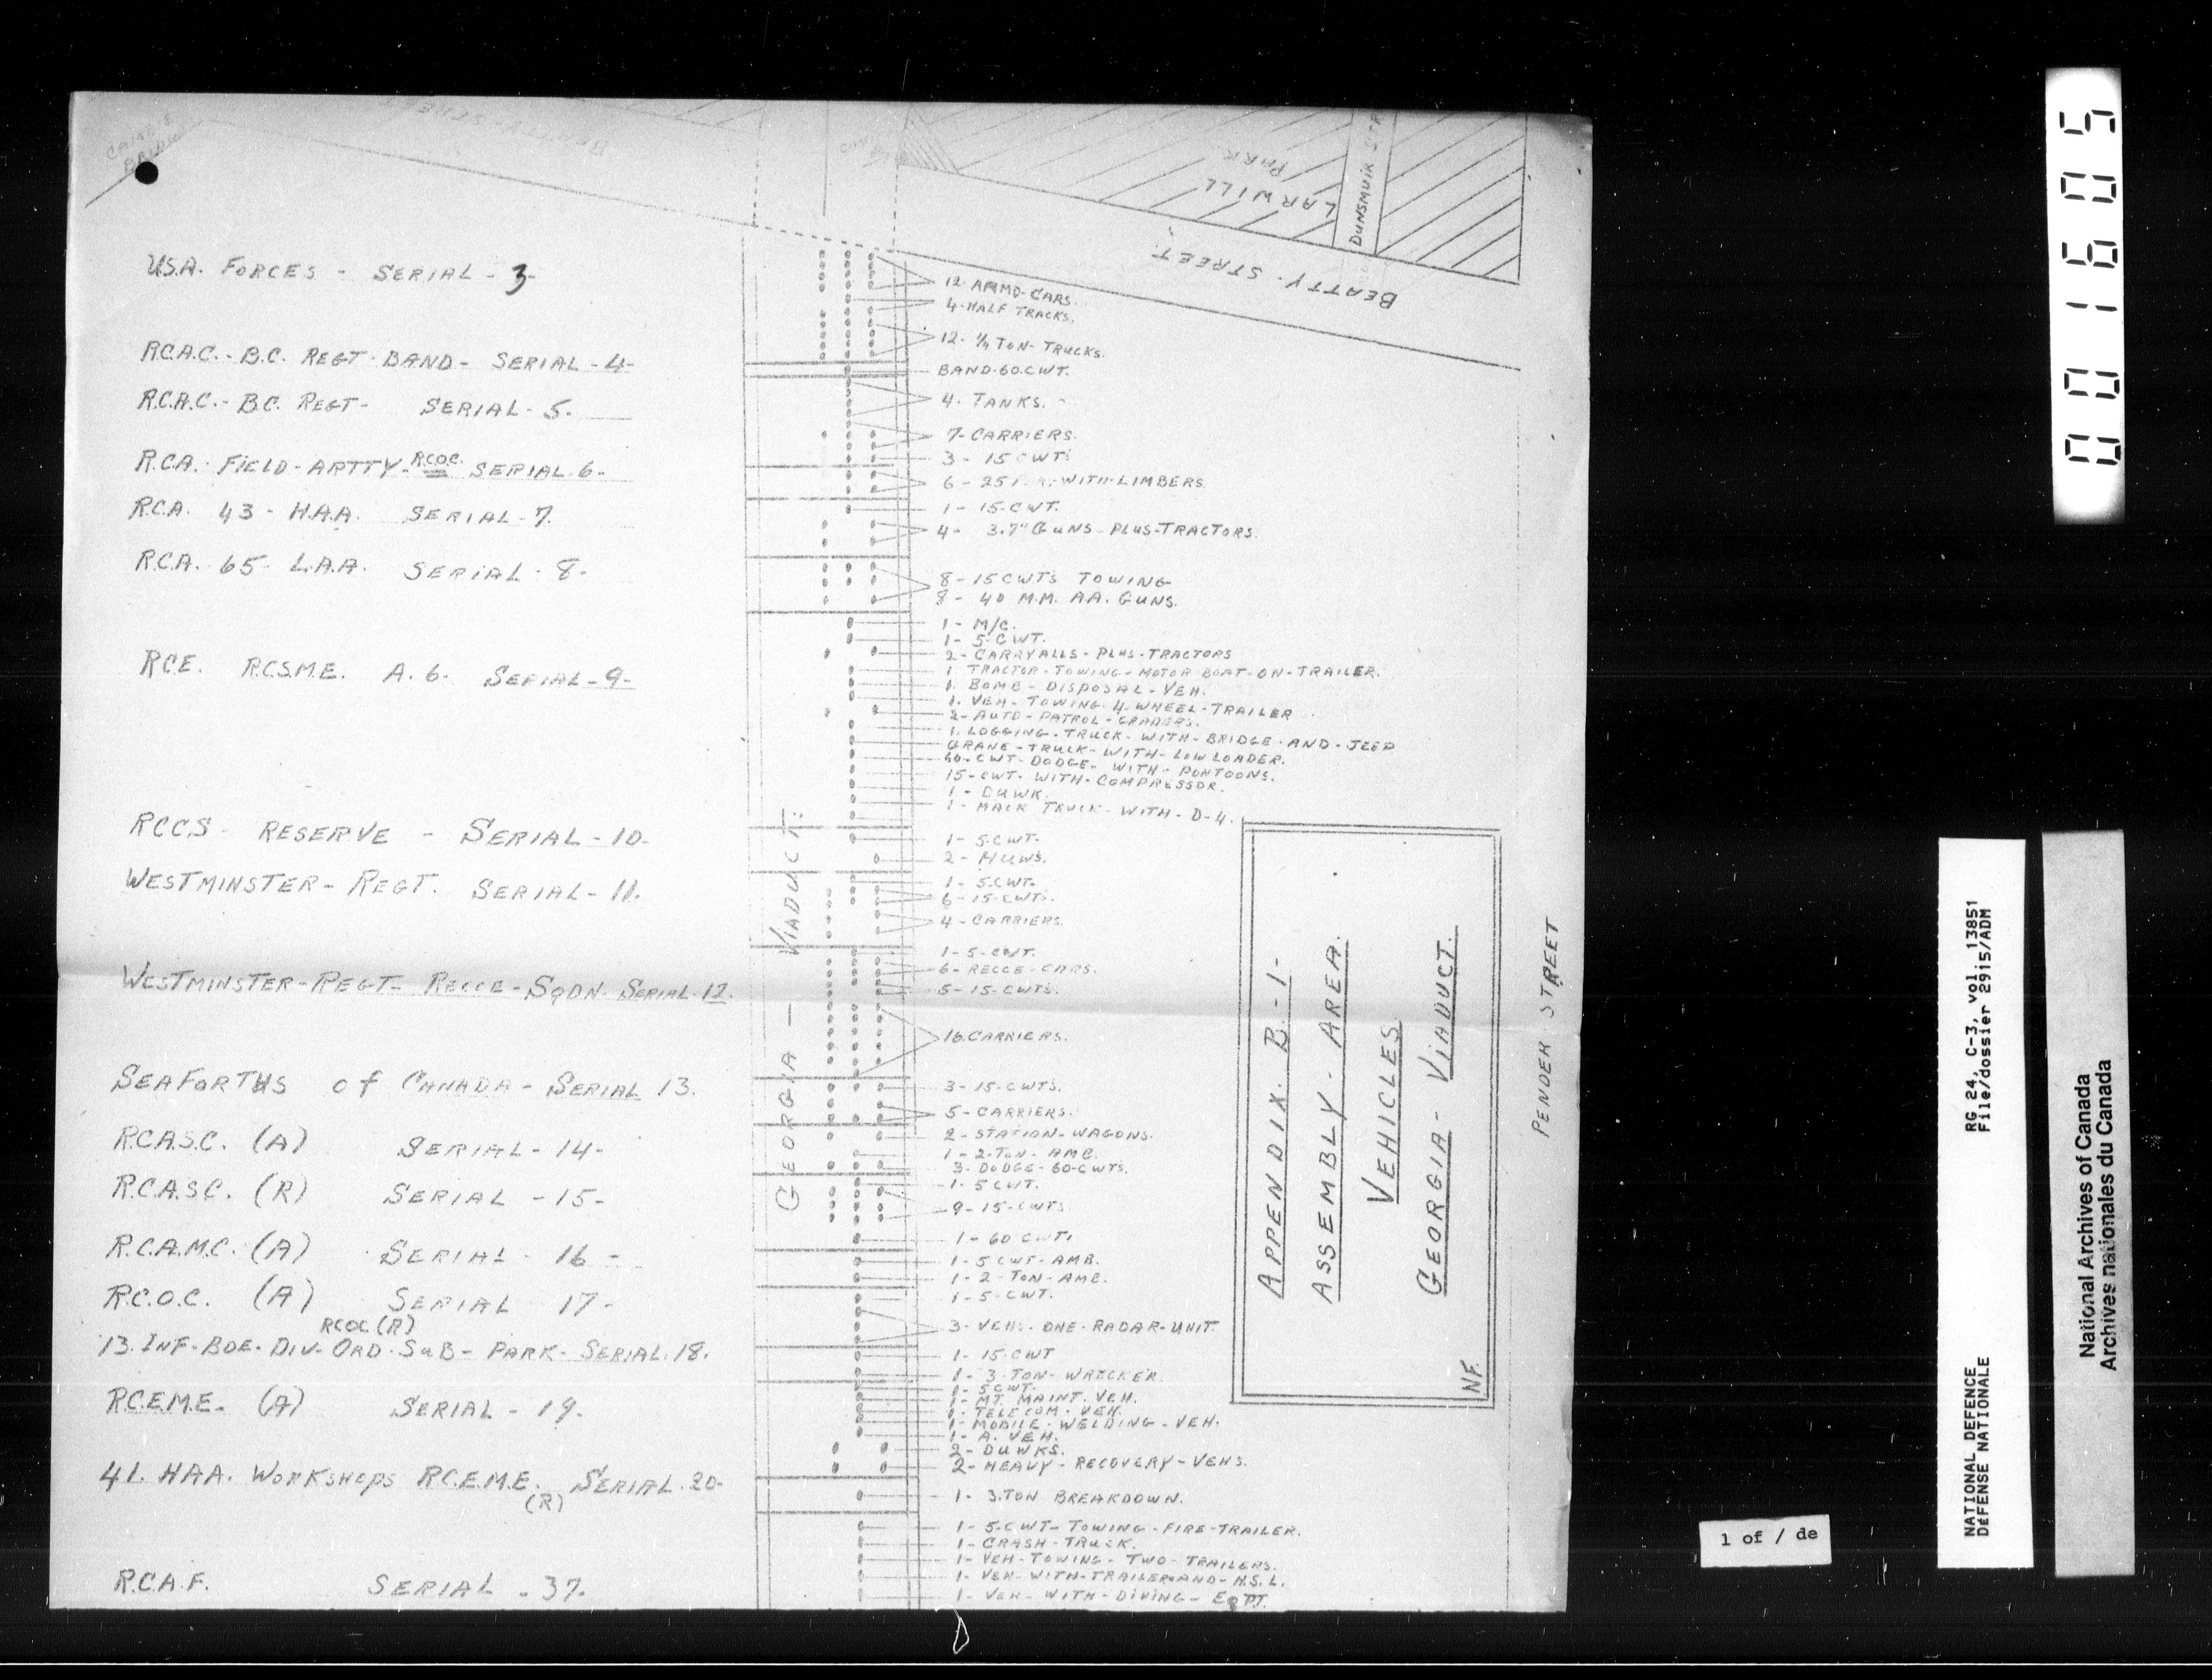 CAMBIE
BRIDGE
BEATTY-STREET
LARWILL
PARK
DUNSMUIR STR
BEATTY-STREET
U.S.A. FORCES - SERIAL - 3-
R.C.A.C.- B.C. REGT-BAND- SERIAL-4-
R.C.A.C.- B.C. REGT- SERIAL-5.
R.C.A. FIELD-ARTTY-R.C.O.C. SERIAL.6-
R.C.A. 43- H.A.A. SERIAL-7.
R.C.A. 65- L.A.A. SERIAL-8-
R.C.E. R.C.S.M.E. A.6- SERIAL-9-
RCCS- RESERVE - SERIAL-10-
WESTMINSTER-REGT. SERIAL-11.
WESTMINSTER-REGT- RECCE-SQDN. SERIAL.12.
SEAFORTHS of CANADA- SERIAL 13.
R.C.A.S.C. (A) SERIAL-14-
R.C.A.S.C. (R) SERIAL-15-
R.C.A.M.C. (A) SERIAL-16-
R.C.O.C. (A) SERIAL 17-
RCOC (R)
13. INF-BDE-DIV-ORD-SUB-PARK-SERIAL.18.
R.C.E.M.E. (A) SERIAL-19.
41. HAA. WORKSHOPS R.C.E.M.E. SERIAL.20-
(R)
R.C.A.F. SERIAL-37-
GEORGIA - VIADUCT.
12-ARMD-CARS.
4-HALF TRACKS.
12-1/4 TON-TRUCKS.
BAND-60.CWT.
4-TANKS.-
7-CARRIERS.
3-15 CWTS
6-25 WITH-LIMBERS
1-15-CWT.
4- 3.7" GUNS-PLUS-TRACTORS.
8-15CWTS TOWING
8-40 M.M. AA. GUNS.
1-M/C.
1-5-CWT.
2-CARRYALLS-PLUS-TRACTORS
1. TRACTOR-TOWING-MOTOR BOAT-ON-TRAILER.
1. BOMB-DISPOSAL-VEH.
1. VEH-TOWING-4-WHEEL-TRAILER
2-AUTO-PATROL-GRADERS.
1. LOGGING-TRUCK-WITH-BRIDGE-AND-JEEP
CRANE-TRUCK-WITH-LOWLOADER.
60-CWT-DODGE-WITH-PONTOONS.
15-CWT-WITH-COMPRESSOR.
1-DUWK.
1-MACK TRUCK-WITH-D-4.
1-5-CWT.
2-HUWS.
1-5-CWT.
6-15-CWTS.
4-CARRIERS.
1-5-CWT.
6-RECCE-CARS.
5-15-CWTS.
16-CARRIERS.
3-15-CWTS.
5-CARRIERS.
2-STATION-WAGONS.
1-2-TON-AMB.
3-DODGE-60-CWTS.
1-5CWT.
9-15-CWTS
1-60 CWT.
1-5 CWT-AMB.
1-2-TON-AMB.
1-5-CWT.
3-VEHS-ONE-RADAR-UNIT.
1-15-CWT
1-3-TON-WRECKER.
1-5CWT.
1-MT. MAINT. VEH.
1-TELECOM-VEH.
1-MOBILE-WELDING-VEH.
1-A. VEH.
2-DUWKS.
2-HEAVY-RECOVERY-VEHS.
1-3.TON BREAKDOWN.
1-5-CWT-TOWING-FIRE-TRAILER.
1-CRASH-TRUCK.
1-VEH-TOWING-TWO-TRAILERS.
1-VEH-WITH-TRAILER-AND-H.S.L.
1-VEH-WITH-DIVING-EQPT.
APPENDIX. B.-1-
ASSEMBLY. AREA.
VEHICLES
GEORGIA-VIADUCT.
NF.
PENDER STREET
001605
RG 24, C-3, vol. 13851
File/dossier 2915/ADM
NATIONAL DEFENCE
DÉFENSE NATIONALE
National Archives of Canada
Archives nationales du Canada
1 of / de